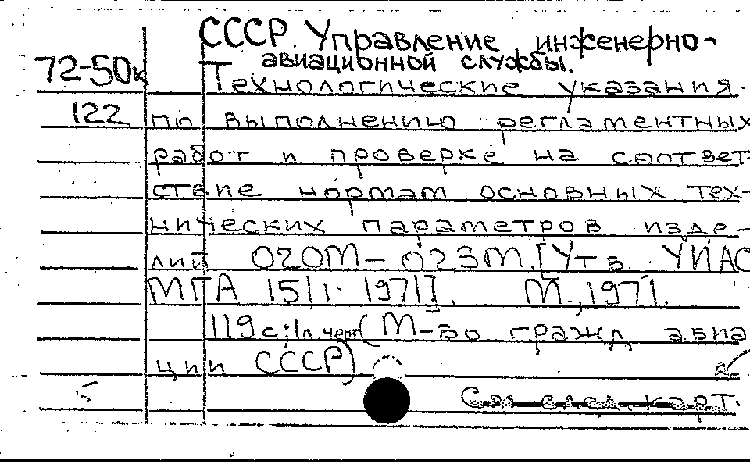 СССР. Управление инженерно-
авиационной службы.
72-50к Технологические указания
122 по выполнению регламентных
работ и проверке на соответ-
ствие нормам основных тех-
нических параметров изде-
лий 020М-023М. [Утв. УИАС
МГА 15/I-1971]. М., 1971.
119 с; 1л. черт (М-во гражд авиа
ции СССР)
См след. карт.